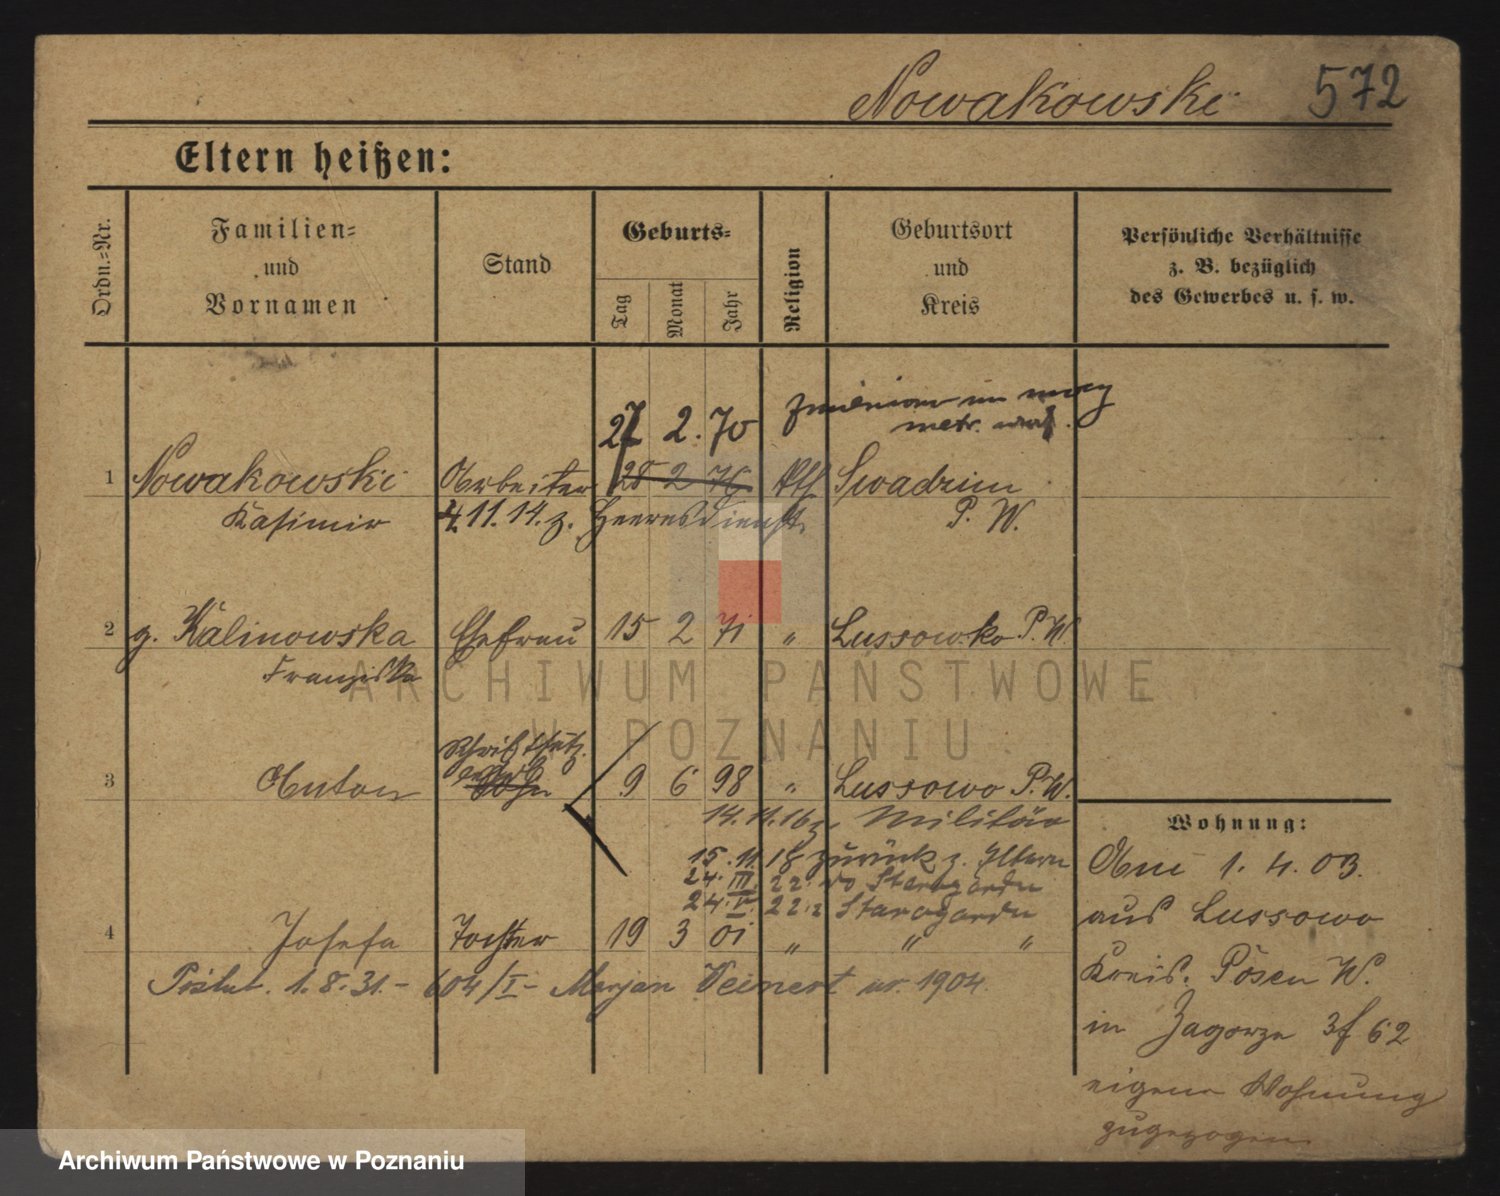 Nowakowski 572
Eltern heißen:
Ordn.=Nr.
Familien=
und
Vornamen
Stand
Geburts=
Tag
Monat
Jahr
Religion
Geburtsort
und
Kreis
Persönliche Verhältnisse
z. B. bezüglich
des Gewerbes u. s. w.
27 2. 70
metr.
1 Nowakowski Arbeiter 28 2 76 kth Swadzim
Kasimir 4.11.14. z. Heeresdienst. P. W.
2 g. Kalinowska Ehefrau 15 2 71 " Lussowko P. W
Franziska
ARCHIWUM PAŃSTWOWE
W POZNANIU
Schriftsetz.
3 Anton Sohn 9 6 98 " Lussowo P. W.
14.11.16 z. Militär
15.11.18 zurück z. Eltern
24. III. 22. do Starogardu
24. V. 22 z Starogardu
4 Josefa Tochter 19 3 01 " " "
1.8.31.- 604/I- Marjan Weinert ur. 1904.
Wohnung:
Ani 1. 4. 03.
aus Lussowo
Kreis. Posen W.
in Zagorze 3f 62
eigene Wohnung
zugezogen.
Archiwum Państwowe w Poznaniu